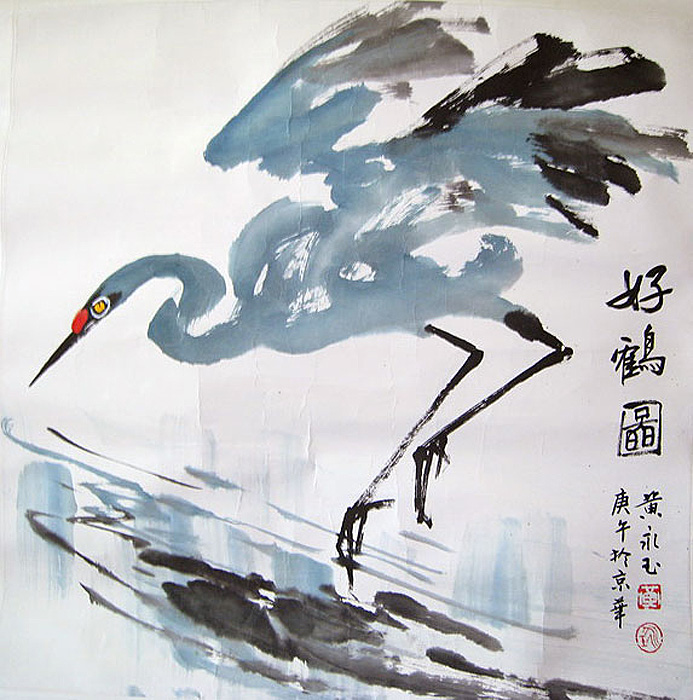 好鶴圖
黄永玉
庚午於京華